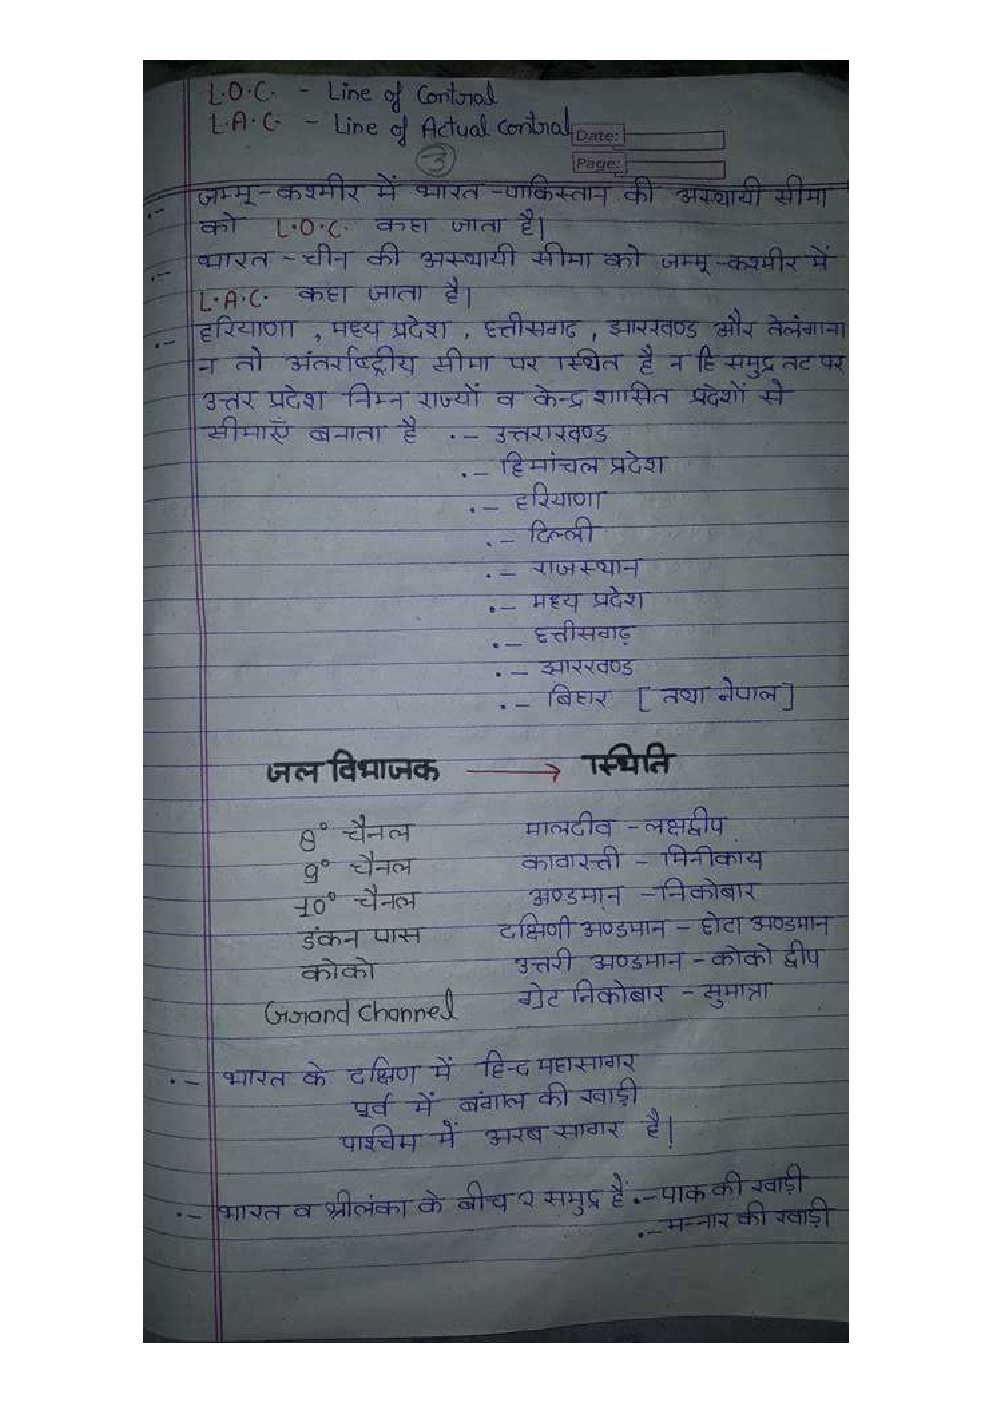 L.O.C. - Line of Control
L.A.C. - Line of Actual control
Date:
Page:
3
.- जम्मू-कश्मीर में भारत-पाकिस्तान की अस्थायी सीमा
को L.O.C. कहा जाता है।
.- भारत-चीन की अस्थायी सीमा को जम्मू-कश्मीर में
L.A.C. कहा जाता है।
.- हरियाणा, मध्य प्रदेश, छत्तीसगढ़, झारखण्ड और तेलंगाना
न तो अंतर्राष्ट्रीय सीमा पर स्थित है न हि समुद्र तट पर
उत्तर प्रदेश निम्न राज्यों व केन्द्र शासित प्रदेशों से
सीमाएँ बनाता है .- उत्तराखण्ड
.- हिमांचल प्रदेश
.- हरियाणा
.- दिल्ली
.- राजस्थान
.- मध्य प्रदेश
.- छत्तीसगढ़
.- झारखण्ड
.- बिहार [ तथा नेपाल ]
जल विभाजक → स्थिति
8° चैनल मालदीव - लक्षद्वीप
9° चैनल कावारत्ती - मिनीकाय
10° चैनल अण्डमान - निकोबार
डंकन पास दक्षिणी अण्डमान - छोटा अण्डमान
कोको उत्तरी अण्डमान - कोको द्वीप
Grand Channel ग्रेट निकोबार - सुमात्रा
.- भारत के दक्षिण में हिन्द महासागर
पूर्व में बंगाल की खाड़ी
पश्चिम में अरब सागर है।
.- भारत व श्रीलंका के बीच २ समुद्र हैं .- पाक की खाड़ी
.- मन्नार की खाड़ी